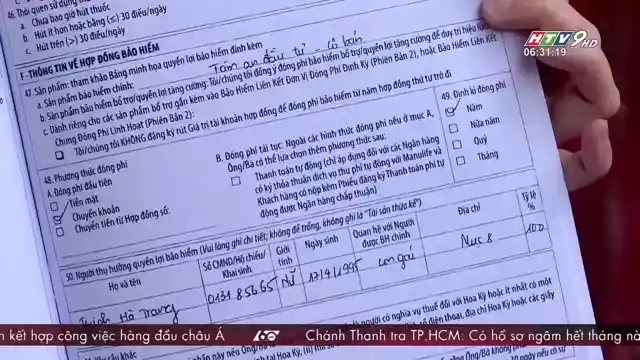 46. Thói quen sử dụng
a. Chưa bao giờ hút thuốc
b. Hút ít hơn hoặc bằng (≤) 30 điếu/ngày
c. Hút trên (>) 30 điếu/ngày
HTV9 HD
06:31:19
F - THÔNG TIN VỀ HỢP ĐỒNG BẢO HIỂM
47. Sản phẩm: tham khảo Bảng minh họa quyền lợi bảo hiểm đính kèm
a. Sản phẩm bảo hiểm chính: Tâm an đầu tư - cơ bản
b. Sản phẩm bảo hiểm bổ trợ/quyền lợi tăng cường: Tôi/chúng tôi đồng ý đóng phí bảo hiểm bổ trợ/quyền lợi tăng cường để duy trì hiệu lực
c. Dành riêng cho các sản phẩm bổ trợ gắn kèm vào Bảo Hiểm Liên Kết Đơn Vị Đóng Phí Định Kỳ (Phiên Bản 2), hoặc Bảo Hiểm Liên Kết
Chung Đóng Phí Linh Hoạt (Phiên Bản 2):
Tôi/chúng tôi KHÔNG đăng ký rút Giá trị tài khoản hợp đồng để đóng phí bảo hiểm từ năm hợp đồng thứ tư trở đi
48. Phương thức đóng phí
A. Đóng phí đầu tiên
Tiền mặt
Chuyển khoản
Chuyển tiền từ Hợp đồng số:
B. Đóng phí tái tục: Ngoài các hình thức đóng phí nêu ở mục A,
Ông/Bà có thể lựa chọn thêm phương thức sau:
Thanh toán tự động (chỉ áp dụng đối với các Ngân hàng
có ký thỏa thuận dịch vụ thu phí tự động với Manulife và
Khách hàng có nộp kèm Phiếu đăng ký Thanh toán phí tự
động được Ngân hàng chấp thuận)
49. Định kì đóng phí
Năm
Nửa năm
Quý
Tháng
50. Người thụ hưởng quyền lợi bảo hiểm (Vui lòng ghi chi tiết; không để trống, không ghi là "Tài sản thừa kế")
Họ và tên
Số CMND/Hộ chiếu/
Khai sinh
Giới
tính
Ngày sinh
Quan hệ với Người
được BH chính
Địa chỉ
Tỷ lệ
%
Trịnh Hà Trang
013185665
nữ
17/4/1995
con gái
Mục 8
100
n kết hợp công việc hàng đầu châu Á
60
Chánh Thanh tra TP.HCM: Có hồ sơ ngâm hết tháng nà